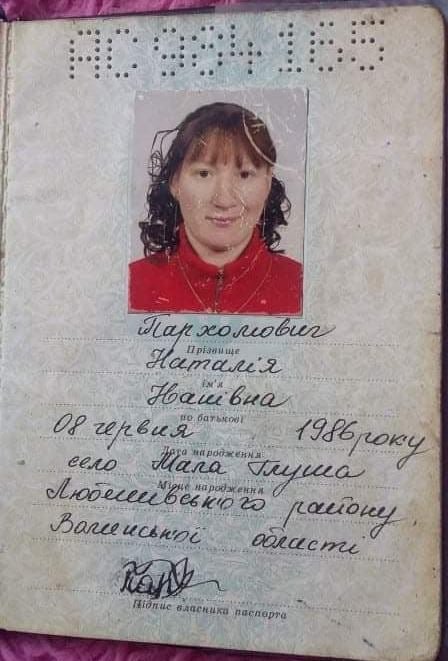 АС 904165
Пархомович
Прізвище
Наталія
ім'я
Нашівна
по батькові
08 червня 1986 року
Дата народження
село Мала Глуша
Місце народження
Любешівського району
Волинської області
Підпис власника паспорта